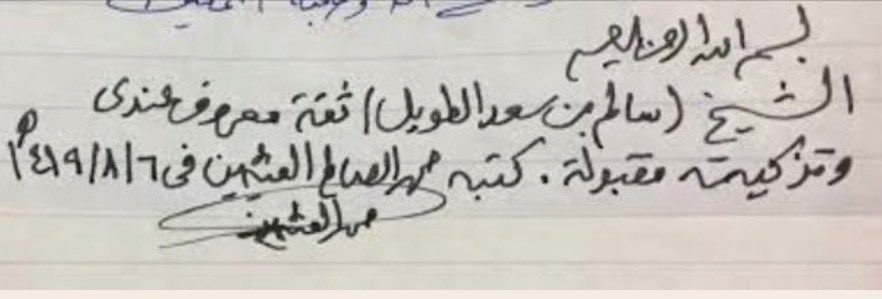 بسم الله الرحمن الرحيم
الشيخ (سالم بن سعد الطويل) ثقة معروف عندى
وتزكيته مقبولة . كتبه محمد الصالح العثيمين فى ٦/٨/١٤١٩هـ
محمد العثيمين